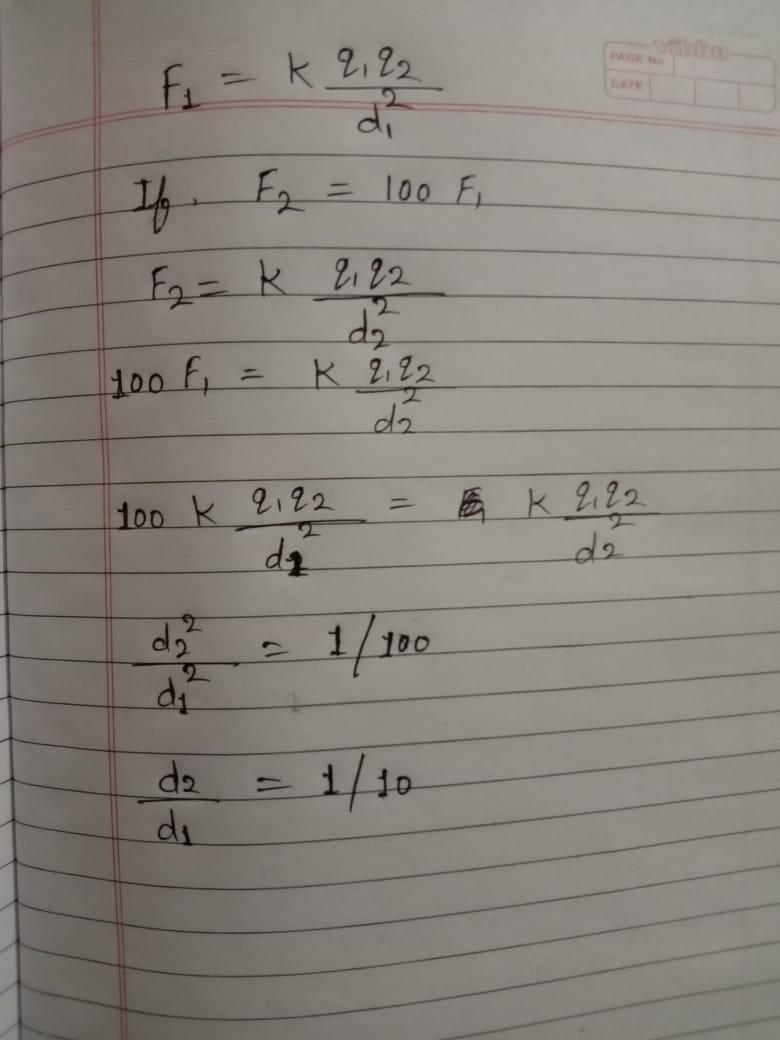 vibhu
PAGE No
DATE
F₁ = K q₁q₂/d₁²
If, F₂ = 100 F₁
F₂ = K q₁q₂/d₂²
100 F₁ = K q₁q₂/d₂²
100 K q₁q₂/d₁² = K q₁q₂/d₂²
d₂²/d₁² = 1/100
d₂/d₁ = 1/10